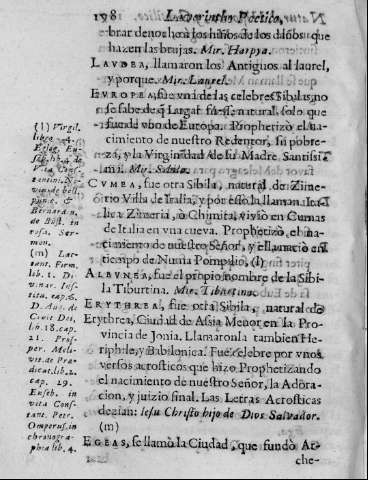 198 Laverintho Poetico,
brar de noche à los niños de los daños que
hazen las brujas. Mir. Harpya.
LAVDEA, llamaron los Antiguos al laurel,
y porque. Mir. Laurel.
EVROPEA, fue vna de las celebres Sibilas, no
se sabe de q Lugar fuesse natural, solo que
fue de vno de Europa. Prophetizò el na-
cimiento de nuestro Redentor, su pobre-
za, y la Virginidad de su Madre Santissi-
ma. Mir. Sibila.
CVMEA, fue otra Sibila, natural de Zime-
rio Villa de Italia, y por esso la llaman Ita-
lica Zimeria, ò Chimica, viviò en Cumas
de Italia en vna cueva. Prophetizò, el na-
cimiento de nuestro Señor, y ella naciò en
tiempo de Numa Pompilio, (l)
ALBVNEA, fue el propio nombre de la Sibi-
la Tiburtina. Mir. Tiburtina.
ERYTHREA, fue otra Sibila, natural de
Erythrea, Ciudad de Assia Menor en la Pro-
vincia de Jonia. Llamaronla tambien He-
riphile, y Babilonica. Fuè celebre por vnos
versos acrosticos que hizo Prophetizando
el nacimiento de nuestro Señor, la Adora-
cion, y juizio final. Las Letras Acrosticas
dezian: Iesu Christo hijo de Dios Salvador.
(m)
EGEAS, se llamò la Ciudad, que fundò Ar-
che-
(l) Virgil.
libro 4.
Eclog. Eu-
seb. lib. 4. de
Vita Cons-
tantini.
Bernardin.
de Bust. in
rosa. Ser-
mon.
(m) Lac-
tant. Firm.
lib. 1. Di-
vinar. Ins-
tita. cap. 6.
D. Aug. de
Civit. Dei,
lib. 18. cap.
21. Pros-
per. Meli-
vit. de Præ-
dicat. lib. 2.
cap. 19.
Euseb. in
vita Cons-
tant. Petr.
Omperus, in
chronogra-
phia lib. 4.